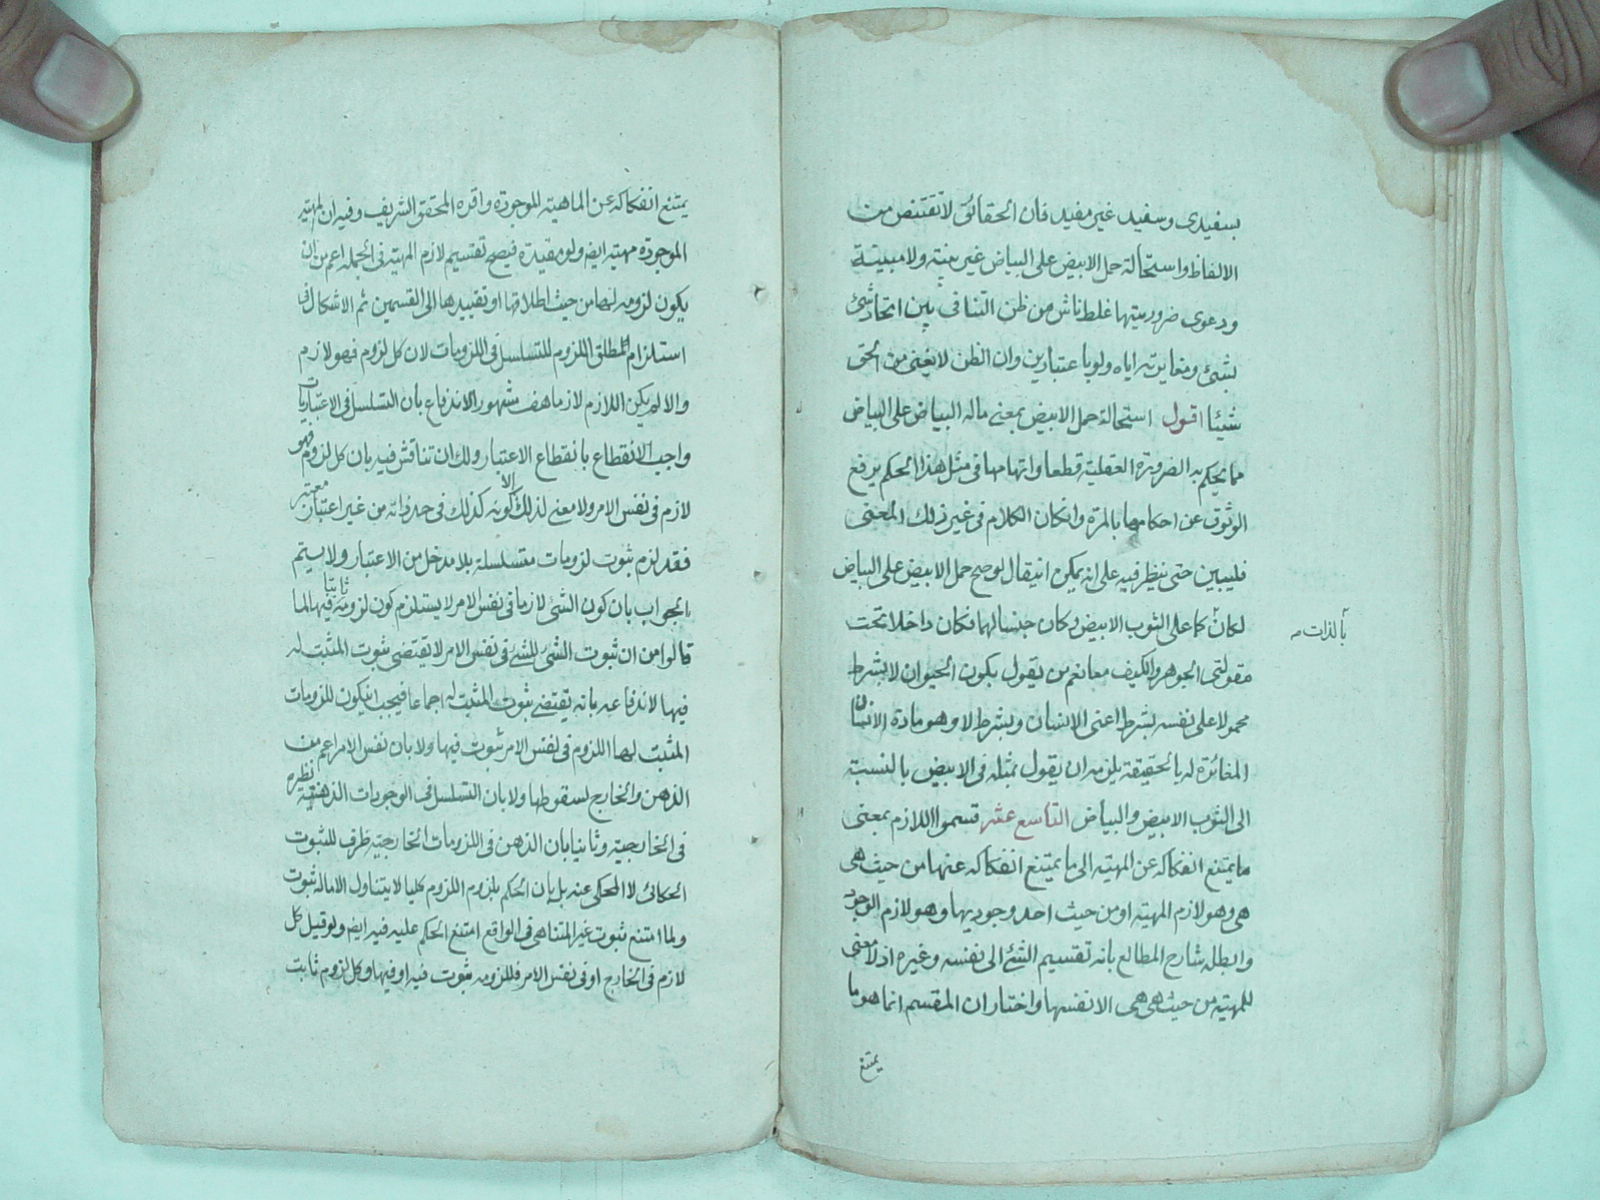 بسفيدى وسفيد غير مفيد فان الحقائق لا تقتنص من
الالفاظ واستحالة حمل الابيض على البياض غير بينة ولا مبينة
ودعوى ضروريتها غلط ناش من ظن التنافى بين اتحاد شئ
بشئ ومغايرته اياه ولو باعتبارين وان الظن لا يغنى من الحق
شيئا اقول استحالة حمل الابيض بمعنى ماله البياض على البياض
مما يحكم به الضرورة العقلية قطعا واتهامها فى مثل هذا الحكم يرفع
الوثوق عن احكامها بالمرة وان كان الكلام فى غير ذلك المعنى
فليبين حتى ينظر فيه على انه يمكن ان يقال لو صح حمل الابيض على البياض
لكان كما على الثوب الابيض لكان جنسا لهما فكان داخلا تحت
بالذات
مقولتى الجوهر والكيف معا نعم من يقول بكون الحيوان لا بشرط
محمولا على نفسه بشرط اعنى الانسان وبشرط لا وهو مادة الانسان
المغائرة له بالحقيقة يلزمه ان يقول بمثله فى الابيض بالنسبة
الى الثوب الابيض والبياض التاسع عشر قسموا اللازم بمعنى
ما يمتنع انفكاكه عن المهية الى ما يمتنع انفكاكه عنها من حيث هى
هى وهو لازم المهية او من حيث احد وجوديها وهو لازم الوجود
وابطله شارح المطالع بانه تقسيم الشئ الى نفسه وغيره اذ لا معنى
للمهية من حيث هى هى الا نفسها واختار ان المقسم انما هو ما
يمتنع
يمتنع انفكاكه عن الماهية الموجودة واقره المحقق الشريف وفيه ان المهية
الموجودة مهية ايضا ولو مقيدة فيصح تقسيم لازم المهية فى الجملة اعم من ان
يكون لزومه لها من حيث اطلاقها او تقييدها الى القسمين ثم الاشكال فى
استلزام مطلق اللزوم للتسلسل فى اللزومات لان كل لزوم فهو لازم
والا لم يكن اللازم لازما هف مشهور الاندفاع بان التسلسل فى الاعتباريات
واجب الانقطاع بانقطاع الاعتبار ولك ان تناقش فيه بان كل لزوم فهو
لازم فى نفس الامر ولا معنى لذلك الا كونه كذلك فى حد ذاته من غير اعتبار معتبر
فقد لزم ثبوت لزومات متسلسلة بلا مدخل من الاعتبار ولا يستم
الجواب بان كون الشئ لازما فى نفس الامر لا يستلزم كون لزومه ثابتا فيها لما
قالوا من ان ثبوت الشئ للشئ فى نفس الامر لا يقتضى ثبوت المثبت له
فيها لاندفاعه بانه يقتضى ثبوت المثبت له اجماعا فيجب ان يكون للزومات
المثبت لها اللزوم فى نفس الامر ثبوت فيها ولا بان نفس الامر اعم من
الذهن والخارج لسقوطها ولا بان التسلسل فى الوجودات الذهنية نظيره
فى الخارجية وثانيا بان الذهن فى اللزومات الخارجية ظرف للثبوت
الحكائى لا المحكى عنه بل بان الحكم بلزوم اللزوم كليا لا يتناول الا ماله ثبوت
ولما امتنع ثبوت غير المتناهى فى الواقع امتنع الحكم عليه فيه ايضا ولو قيل كل
لازم فى الخارج او فى نفس الامر فللزومه ثبوت فيه او فيها وكل لزوم ثابت